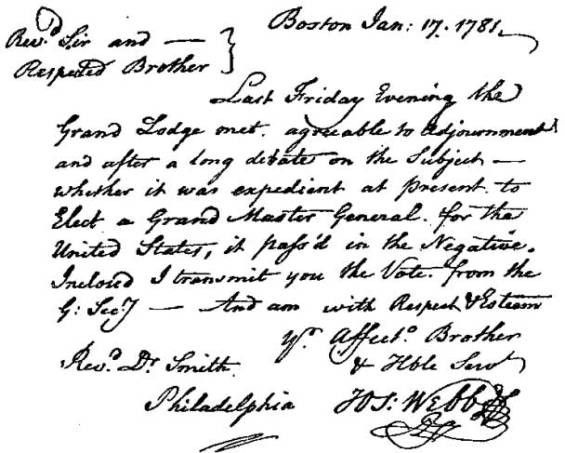 Boston Jan: 17. 1781.
Rev.d Sir and —
Respected Brother
Last Friday Evening the
Grand Lodge met. agreable to adjournment
and after a long debate on the Subject —
whether it was expedient at present to
Elect a Grand Master General for the
United States, it pass'd in the Negative.
Inclosed I transmit you the Vote. from the
G: Sec:y — And am with Respect & Esteem
Yr Affect.o Brother
Rev.d Dr Smith. & Hble Servt
Philadelphia Jos: Webb